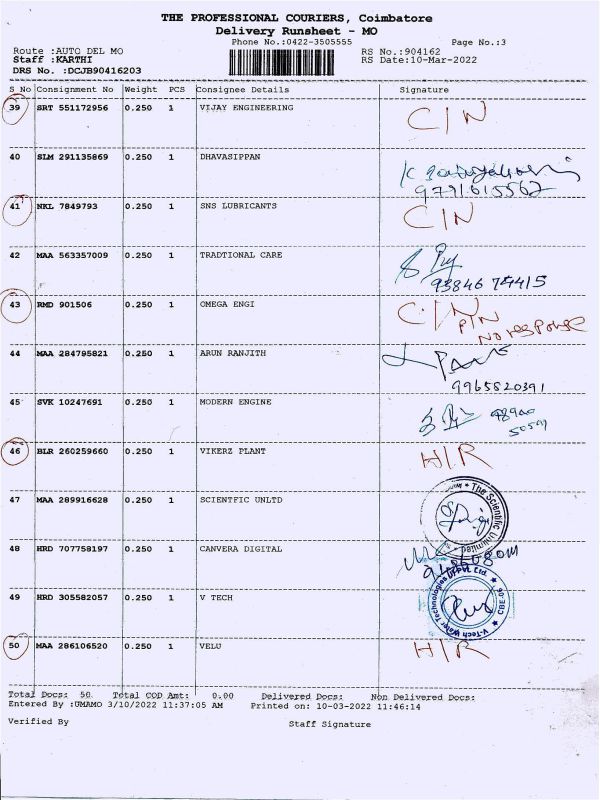 THE PROFESSIONAL COURIERS, Coimbatore
Delivery Runsheet - MO
Phone No.:0422-3505555 Page No.:3
Route :AUTO DEL MO RS No.:904162
Staff :KARTHI RS Date:10-Mar-2022
DRS No. :DCJB90416203
S No Consignment No Weight PCS Consignee Details Signature
39 SRT 551172956 0.250 1 VIJAY ENGINEERING C/N
40 SLM 291135869 0.250 1 DHAVASIPPAN
9791615562
41 NKL 7849793 0.250 1 SNS LUBRICANTS C/N
42 MAA 563357009 0.250 1 TRADTIONAL CARE
43 RMD 901506 0.250 1 OMEGA ENGI C/N
P/N
NO RESPONSE
44 MAA 284785821 0.250 1 ARUN RANJITH
9965820391
45 SVK 10247691 0.250 1 MODERN ENGINE
46 BLR 260259660 0.250 1 VIKERZ PLANT H/R
47 MAA 289916628 0.250 1 SCIENTFIC UNLTD
The Scientific Unlimited
48 HRD 707758197 0.250 1 CANVERA DIGITAL
49 HRD 305582057 0.250 1 V TECH
V-Tech Water Technologies Pvt Ltd
50 MAA 286106520 0.250 1 VELU H/R
Total Docs: 50 Total COD Amt: 0.00 Delivered Docs: Non Delivered Docs:
Entered By :UMAMO 3/10/2022 11:37:05 AM Printed on: 10-03-2022 11:46:14
Verified By Staff Signature